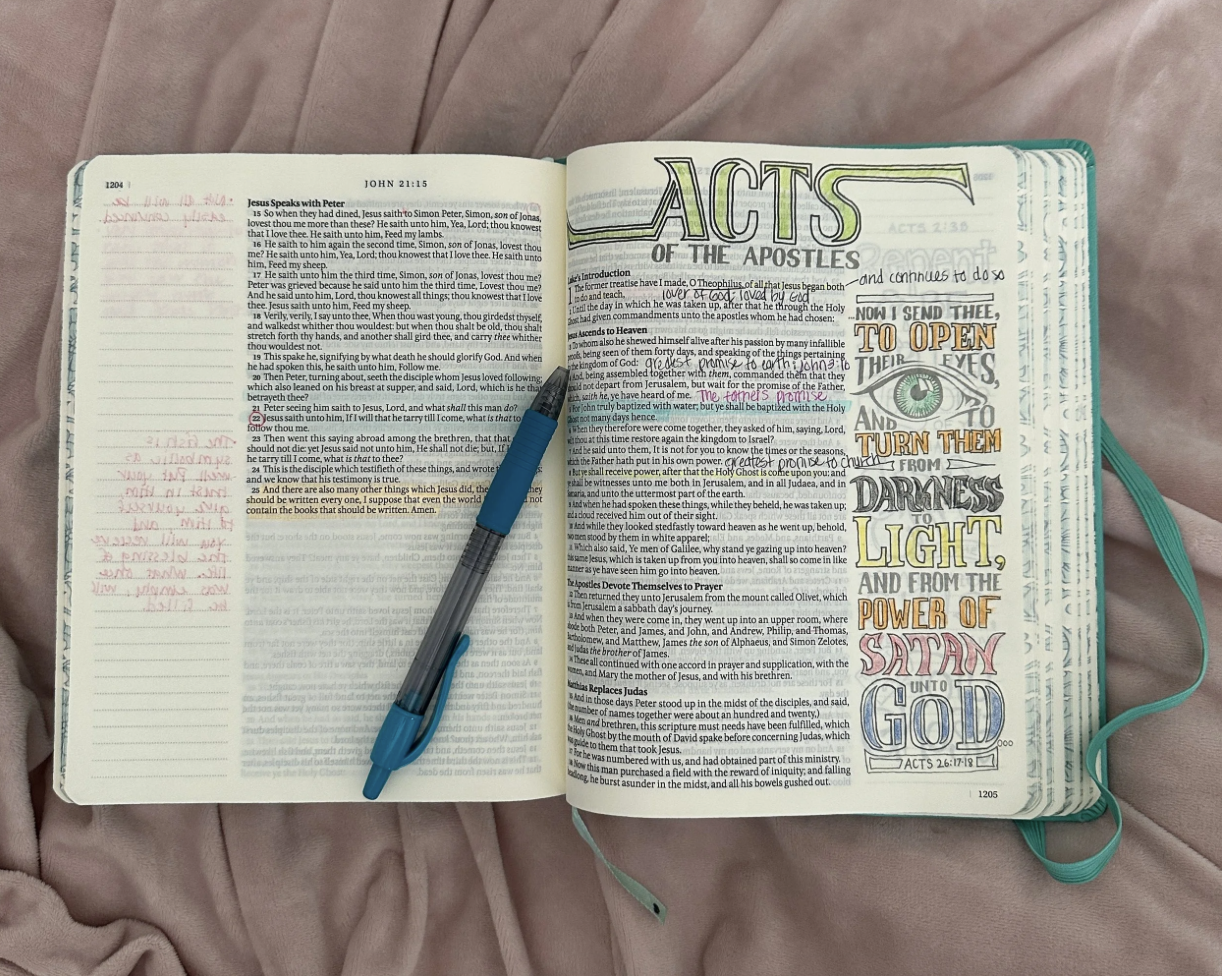 1204
JOHN 21:15
Jesus Speaks with Peter
15 So when they had dined, Jesus saith to Simon Peter, Simon, son of Jonas,
lovest thou me more than these? He saith unto him, Yea, Lord; thou knowest
that I love thee. He saith unto him, Feed my lambs.
16 He saith to him again the second time, Simon, son of Jonas, lovest thou
me? He saith unto him, Yea, Lord; thou knowest that I love thee. He saith unto
him, Feed my sheep.
17 He saith unto him the third time, Simon, son of Jonas, lovest thou me?
Peter was grieved because he said unto him the third time, Lovest thou me?
And he said unto him, Lord, thou knowest all things; thou knowest that I love
thee. Jesus saith unto him, Feed my sheep.
18 Verily, verily, I say unto thee, When thou wast young, thou girdedst thyself,
and walkedst whither thou wouldest: but when thou shalt be old, thou shalt
stretch forth thy hands, and another shall gird thee, and carry thee whither
thou wouldest not.
19 This spake he, signifying by what death he should glorify God. And when
he had spoken this, he saith unto him, Follow me.
20 Then Peter, turning about, seeth the disciple whom Jesus loved following;
which also leaned on his breast at supper, and said, Lord, which is he that
betrayeth thee?
21 Peter seeing him saith to Jesus, Lord, and what shall this man do?
22 Jesus saith unto him, If I will that he tarry till I come, what is that to
follow thou me.
23 Then went this saying abroad among the brethren, that that
should not die: yet Jesus said not unto him, He shall not die; but, If
he tarry till I come, what is that to thee?
24 This is the disciple which testifieth of these things, and wrote
and we know that his testimony is true.
25 And there are also many other things which Jesus did, the they
should be written every one, I suppose that even the world not
contain the books that should be written. Amen.
ACTS
OF THE APOSTLES
Introduction
The former treatise have I made, O Theophilus, of all that Jesus began both
to do and teach,
and continues to do so
lover of God; loved by God
Until the day in which he was taken up, after that he through the Holy
had given commandments unto the apostles whom he had chosen:
Ascends to Heaven
To whom also he shewed himself alive after his passion by many infallible
being seen of them forty days, and speaking of the things pertaining
kingdom of God:
greatest promise to earth: John 3:16
And, being assembled together with them, commanded them that they
not depart from Jerusalem, but wait for the promise of the Father,
saith he, ye have heard of me.
The father's promise
For John truly baptized with water; but ye shall be baptized with the Holy
not many days hence.
When they therefore were come together, they asked of him, saying, Lord,
thou at this time restore again the kingdom to Israel?
And he said unto them, It is not for you to know the times or the seasons,
which the Father hath put in his own power.
greatest promise to church
But ye shall receive power, after that the Holy Ghost is come upon you: and
shall be witnesses unto me both in Jerusalem, and in all Judaea, and in
and unto the uttermost part of the earth.
And when he had spoken these things, while they beheld, he was taken up;
and a cloud received him out of their sight.
And while they looked stedfastly toward heaven as he went up, behold,
men stood by them in white apparel;
Which also said, Ye men of Galilee, why stand ye gazing up into heaven?
same Jesus, which is taken up from you into heaven, shall so come in like
manner as ye have seen him go into heaven.
The Apostles Devote Themselves to Prayer
Then returned they unto Jerusalem from the mount called Olivet, which
from Jerusalem a sabbath day's journey.
And when they were come in, they went up into an upper room, where
abode both Peter, and James, and John, and Andrew, Philip, and Thomas,
and Matthew, James the son of Alphaeus, and Simon Zelotes,
and Judas the brother of James.
These all continued with one accord in prayer and supplication, with the
women, and Mary the mother of Jesus, and with his brethren.
Matthias Replaces Judas
And in those days Peter stood up in the midst of the disciples, and said,
number of names together were about an hundred and twenty,)
Men and brethren, this scripture must needs have been fulfilled, which
Holy Ghost by the mouth of David spake before concerning Judas, which
was guide to them that took Jesus.
For he was numbered with us, and had obtained part of this ministry.
Now this man purchased a field with the reward of iniquity; and falling
headlong, he burst asunder in the midst, and all his bowels gushed out.
NOW I SEND THEE,
TO OPEN
THEIR EYES,
AND TO
TURN THEM
FROM
DARKNESS
TO
LIGHT,
AND FROM THE
POWER OF
SATAN
UNTO
GOD
ACTS 26:17-18
1205